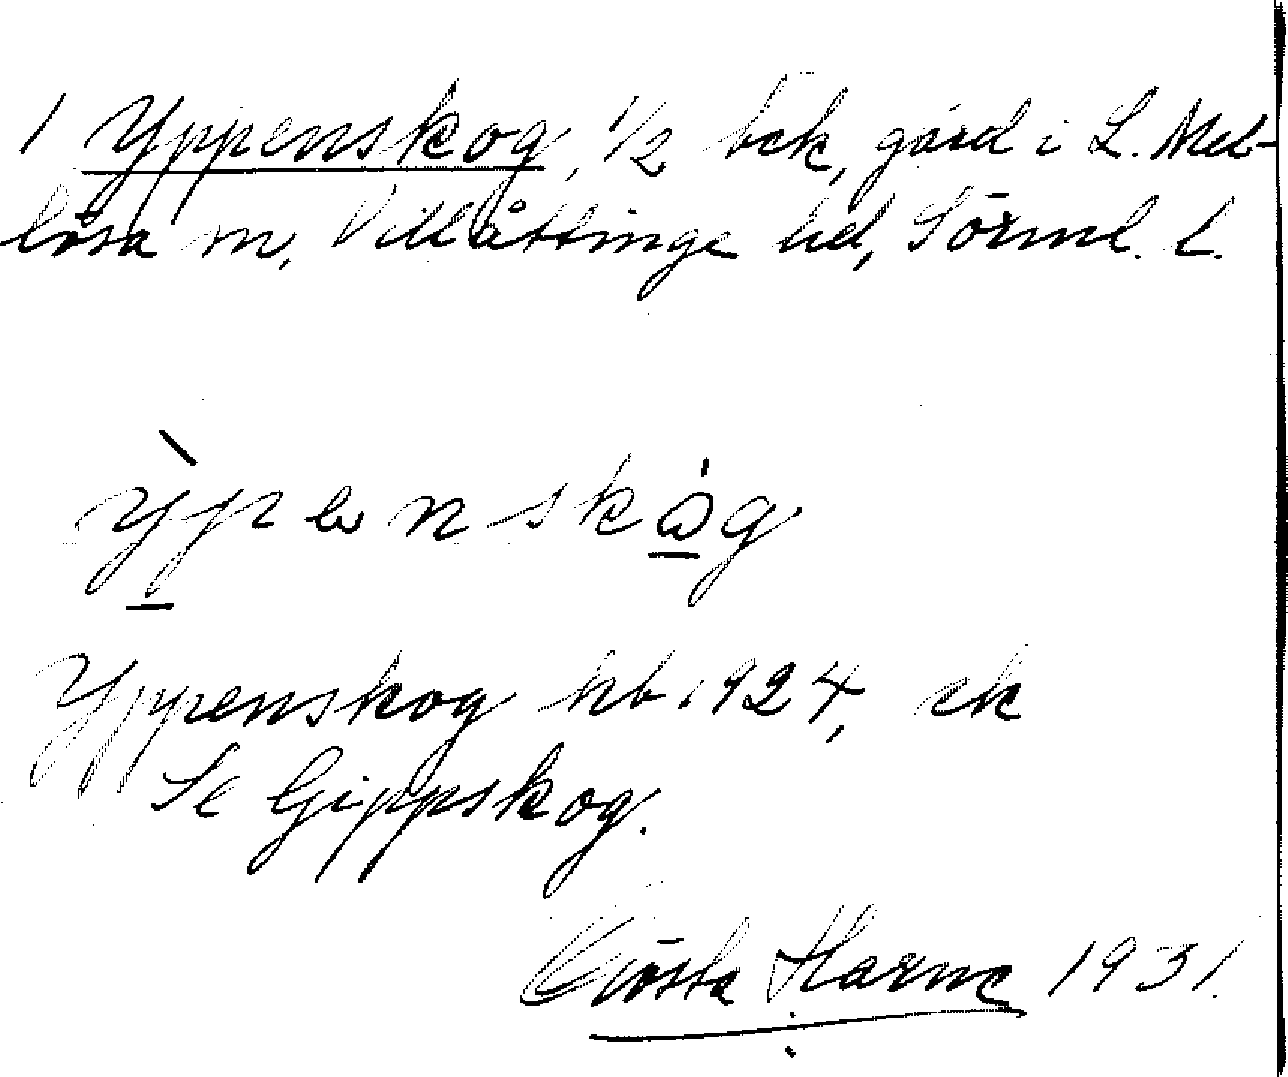 1 Yppenskog, 1/2 bck, gård i L. Mel-
lösa sn, Villåttinge hd, Sörml. l.
ỳpenskå̇g
Yppenskog hb 1924, ek
Se Gippskog.
Gösta Harne 1931.